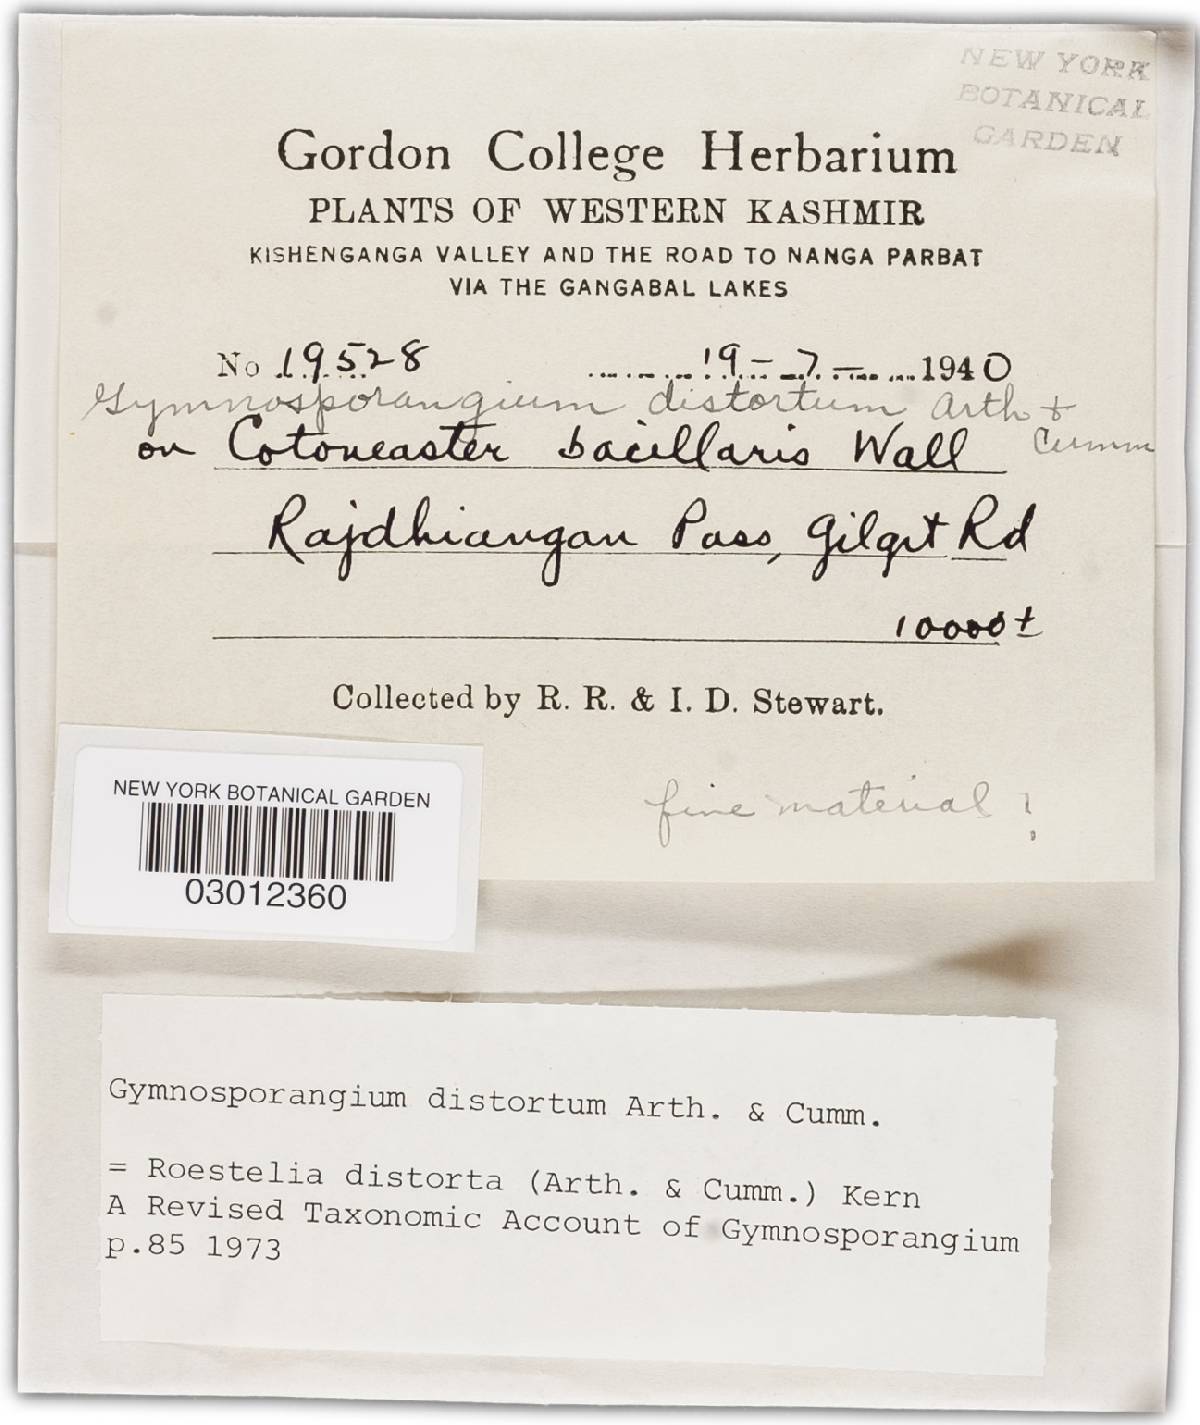 NEW YORK
BOTANICAL
GARDEN
Gordon College Herbarium
PLANTS OF WESTERN KASHMIR
KISHENGANGA VALLEY AND THE ROAD TO NANGA PARBAT
VIA THE GANGABAL LAKES
No 19528 19-7-1940
Gymnosporangium distortum Arth &
Cumm
on Cotoneaster bacillaris Wall
Rajdhiangan Pass, Gilgit Rd
10000±
Collected by R. R. & I. D. Stewart.
fine material!
NEW YORK BOTANICAL GARDEN
03012360
Gymnosporangium distortum Arth. & Cumm.
= Roestelia distorta (Arth. & Cumm.) Kern
A Revised Taxonomic Account of Gymnosporangium
p.85 1973